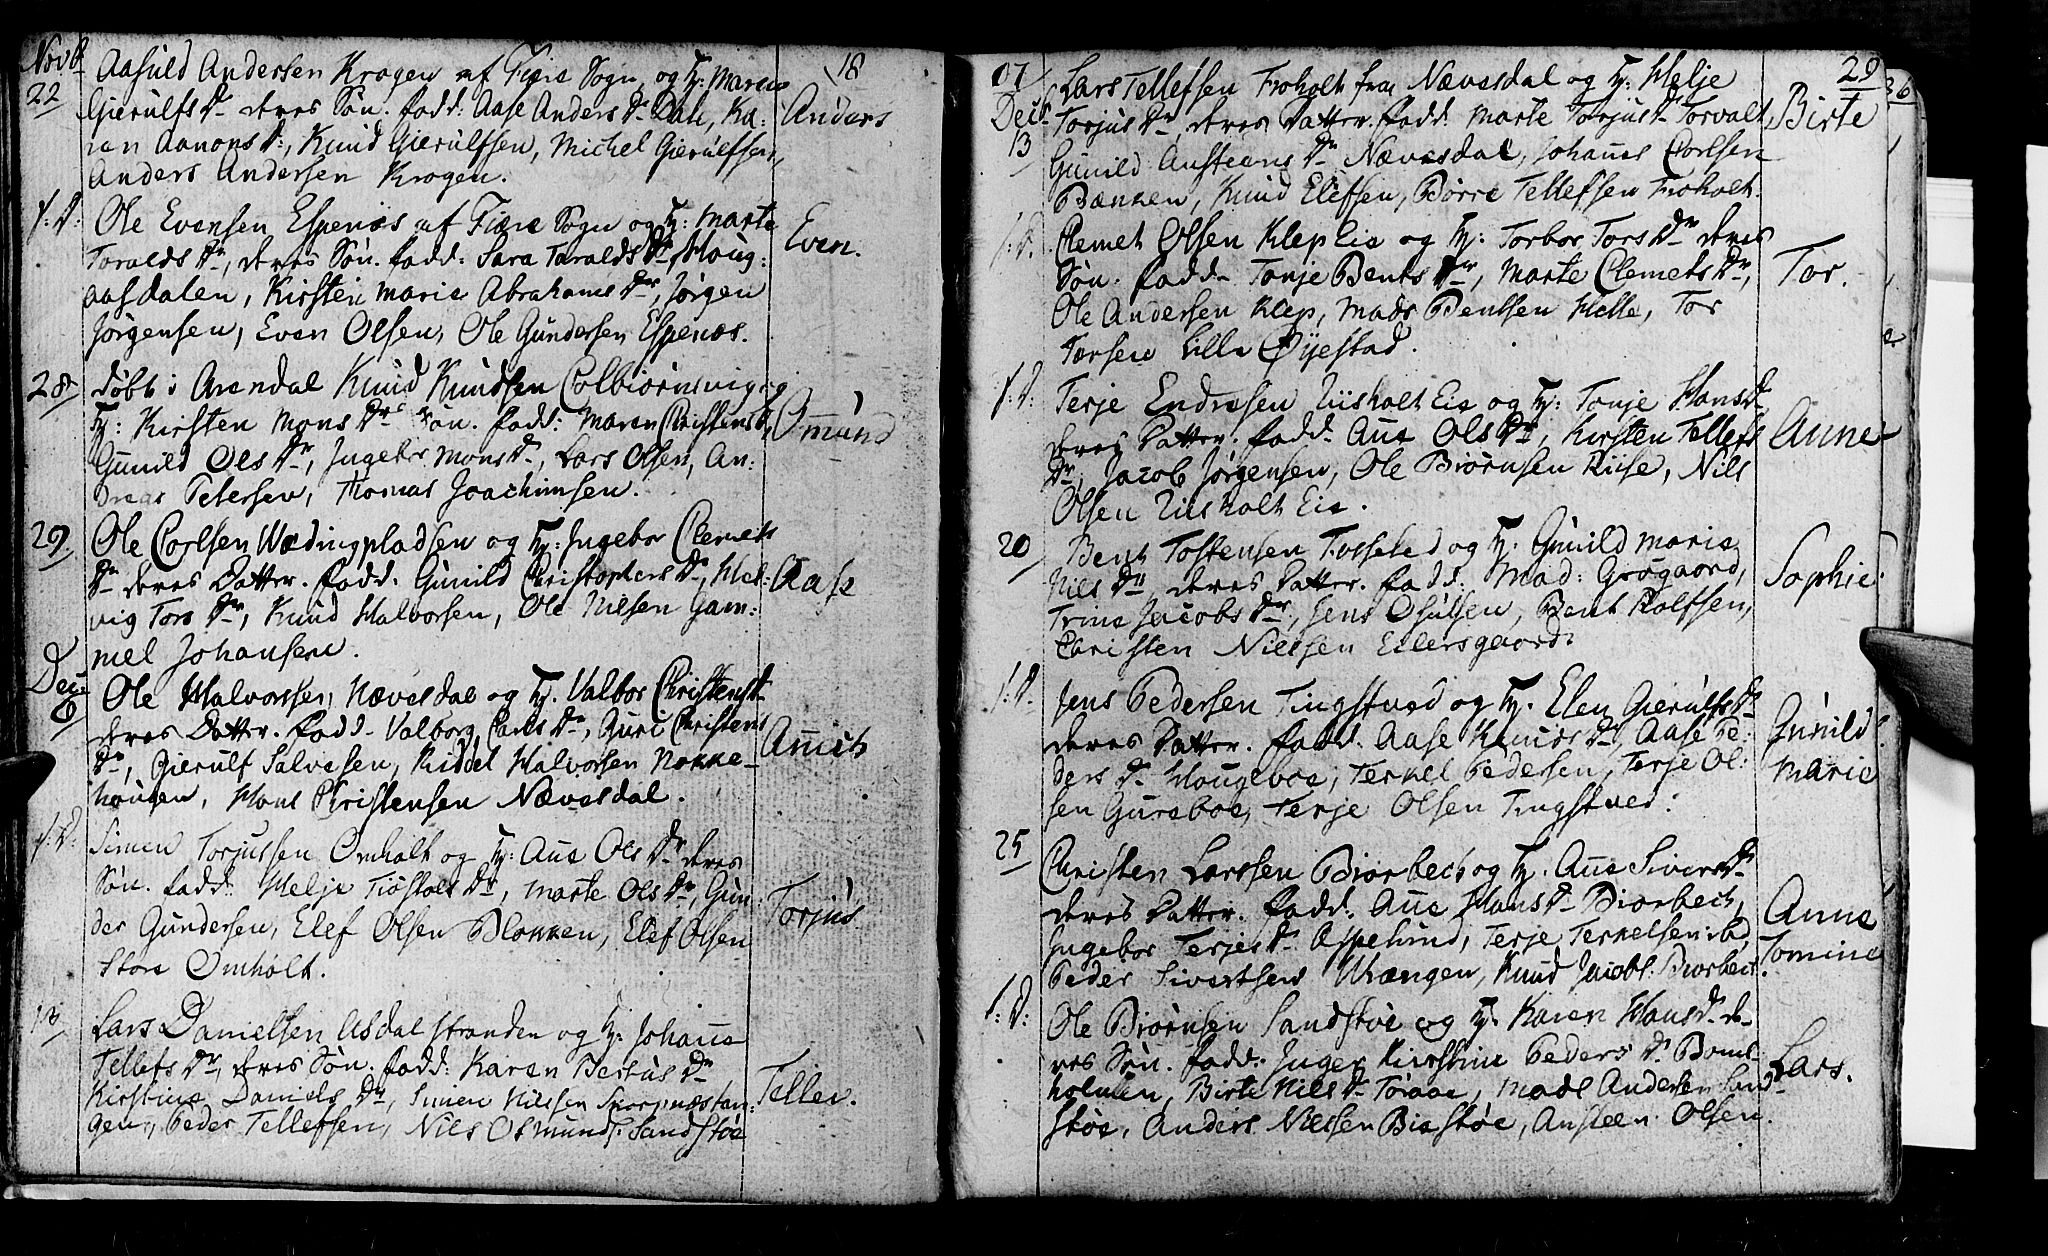 Novb 18
Aasuld Andersen Krogen af Fiære Sogn og H: Maren
22 Gierulfs Dr deres Søn. fadd: Aase Anders Dr Dale, Ka: Anders
ren Aanons Dr, Knud Gierulfsen, Michel Gierulfsen,
Anders Andersen Krogen.
s: D: Ole Evensen Espenæs af Fiære Sogn og H: Marte
Toralds Dr, deres Søn. fadd: Sara Taralds Dr Houg: Even.
aasdalen, Kirsten Marie Abrahams Dr, Jørgen
Jørgensen, Even Olsen, Ole Gundersen Espenæs.
28 døbt i Arendal Knud Knudsen Colbiørnsvig og
H: Kirsten Mons Dr Søn. fadd: Maren Christens Dr, Omund
Gunild Ols Dr, Ingebor Mons Dr, Lars Olsen, An:
dreas Petersen, Thomas Joachimsen.
29. Ole Carlsen Wædingpladsen og H: Ingebor Clemets
Dr deres Datter. fadd. Gunild Christophers Dr, Hel: Aase
vig Tors Dr, Knud Halvorsen, Ole Nilsen Gam:
mel Johansen.
Dec:
6 Ole Halvorsen Nævesdal og H. Valbor Christens Dr
deres Datter. fadd. Valborg Carls Dr, Guri Christens
Dr, Gierulf Salvesen, Kiddel Halvorsen Nokke- Annich
hougen, Hans Christensen Nævesdal.
s: D: Simen Torjussen Omholt og H: Ane Ols Dr deres
Søn. fadd: Helje Tiøstols Dr, Marte Ols Dr, Gun: Torjus.
der Gundersen, Elef Olsen Blokken, Elef Olsen
Store Omholt.
13 Lars Danielsen Asdal stranden og H. Johanne
Tellefs Dr, deres Søn. fadd: Karen Bertus Dr Tellev.
Kirstine Daniels Dr, Simen Nilssen Skorpnæstan:
gen, Peder Tellefsen, Nils Osmunds. Sandstøe
07 29
Lars Tellefsen Froholt fra Nævesdal og H: Helje
Decb. Torjus Dr, deres Datter. fadd: Marte Torjus Dr Torvalt, Birte
13 Gunild Ansteens Dr Nævesdal, Johannes Carlsen
Bænken, Knud Elefsen, Børre Tellefsen Froholt.
s: D. Clemet Olsen Klep Eie og H: Torbor Tors Dr deres
Søn. fadd. Tonje Bents Dr, Marte Clemets Dr, Tor.
Ole Andersen Klep, Mads Bentsen Helle, Tor
Torsen Lille Øyestad.
s: D: Terje Endresen Riisholt Eie og H: Tonje Hans Dr
deres Datter. fadd. Ane Ols Dr, Kirsten Tellefs Anne
Dr, Jacob Jørgensen, Ole Biørnsen Riise, Nils
Olsen Riisholt Eie.
20 Bent Tostensen Fosseled og H. Gunild Marie
Nils Dr, deres Datter. fadd. Mad: Grøgaard, Sophie.
Trine Jacobs Dr, Jens Osulsen, Bent Rolfsen,
Christen Nielsen Eilersgaard.
s: D. Jens Pedersen Tingstved og H. Elen Gierulfs Dr
deres Datter. fadd: Aase Knuds Dr, Aase Pe: Gunild
ders Dr Hougeboe, Terkel Pedersen, Terje Ol: Marie
sen Gureboe, Terje Olsen Tingstved.
25 Christen Larssen Biorbech og H. Ane Sivers Dr
deres Datter. fadd. Ane Hans Dr Biorbech, Anne
Ingebor Terjes Dr Aspelund, Terje Terkelsen ibd, Tomine
Peder Sivertsen Wrængen, Knud Jacobs. Biorbech.
s: D: Ole Biørnsen Sandstøe og H. Karen Hans Dr de-
res Søn. fadd: Inger Kirstine Peders Dr Boms- Lars.
holmen, Birte Nils Dr Toraae, Mads Andersen Sand-
støe, Anders Nielsen Biestøe, Ansteen Olsen.